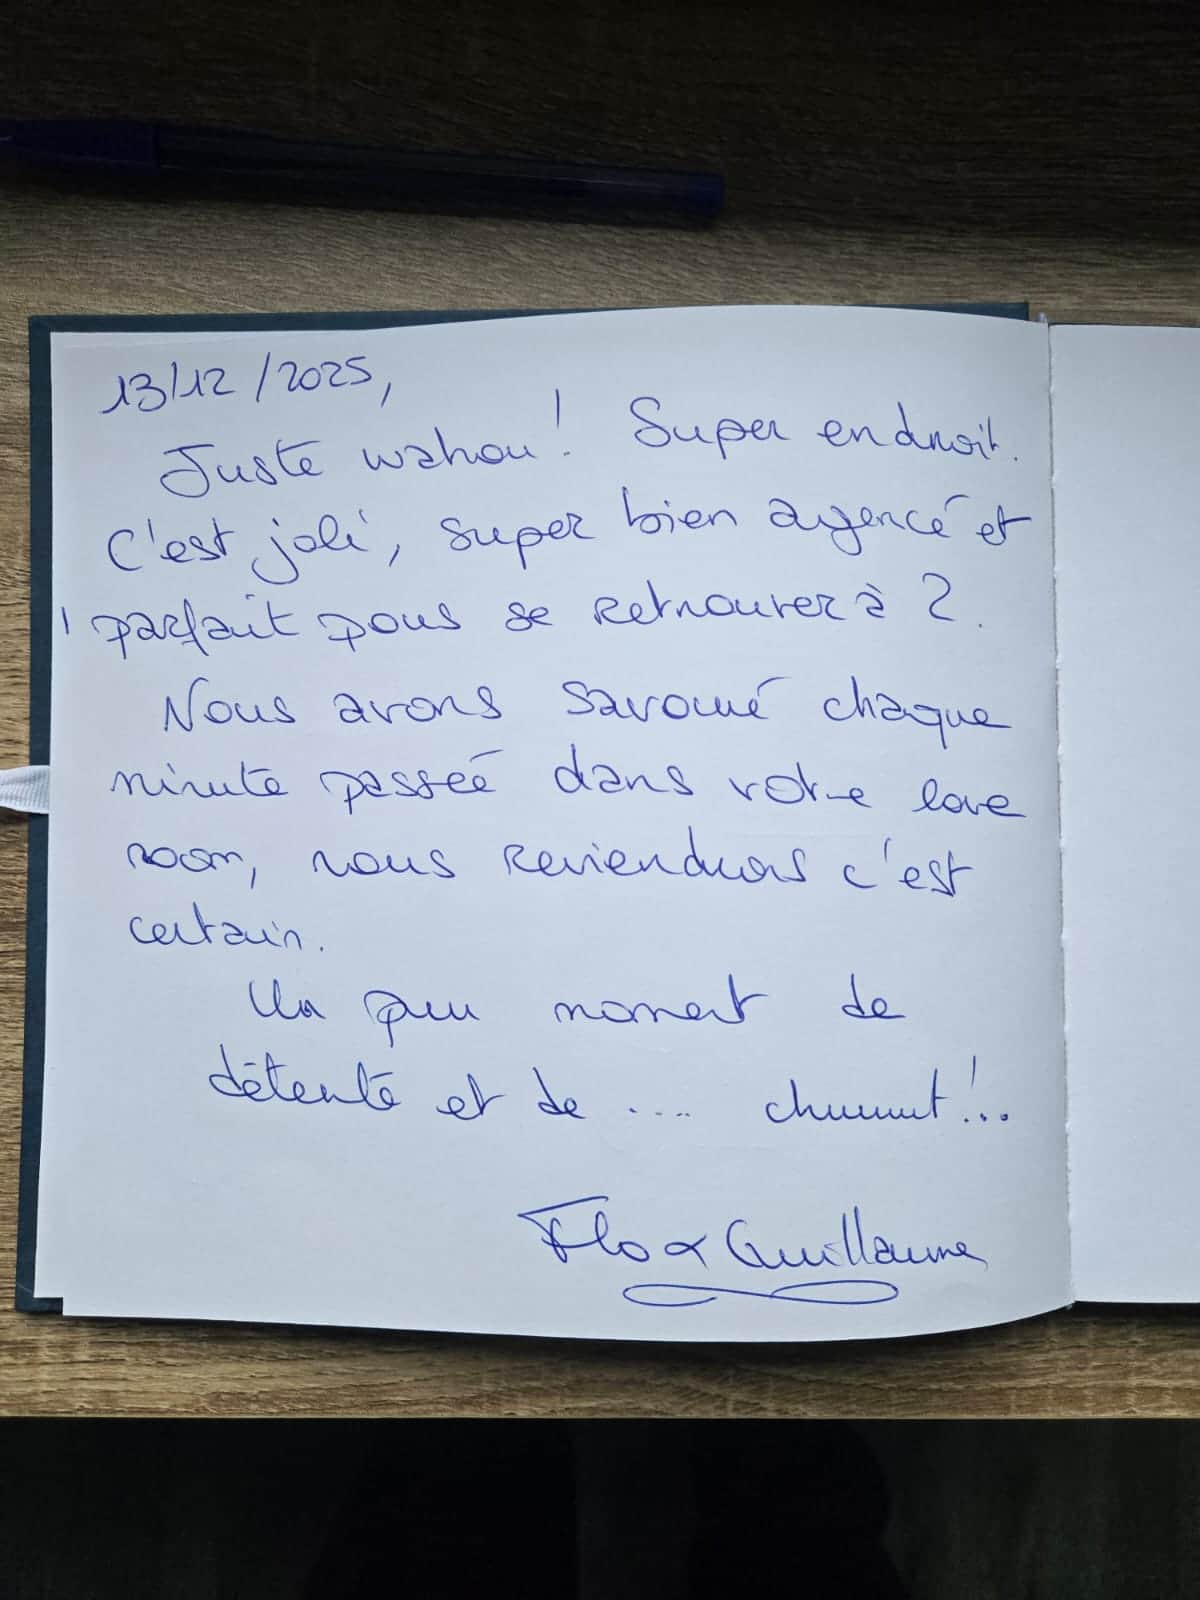 13/12/2025,
Juste wahou! Super endroit.
C'est joli, super bien agencé et
parfait pour se retrouver à 2.
Nous avons savouré chaque
minute passée dans votre love
room, nous reviendrons c'est
certain.
Un pur moment de
détente et de .... chuuuut!...
Flo & Guillaume